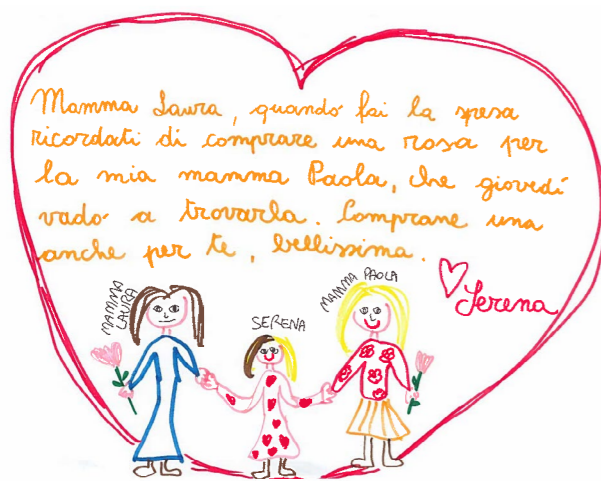 Mamma Laura, quando fai la spesa
ricordati di comprare una rosa per
la mia mamma Paola, che giovedì
vado a trovarla. Comprane una
anche per te, bellissima.
Serena
MAMMA
LAURA
SERENA
MAMMA PAOLA